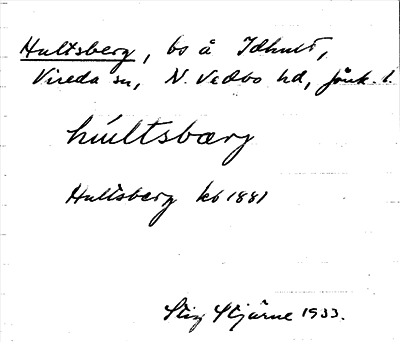 Hultsberg, bs å Idhult,
Vireda sn, N. Vedbo hd, Jönk. l.
húltsbærg
Hultsberg kb 1881
Stig Stjärne 1933.